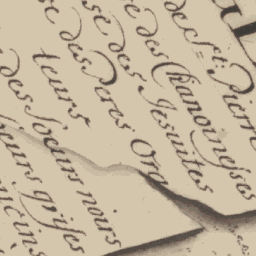 de St. Pierre
e des Chanoinesses
se des Jesuites
e des Peres Ora
teurs
des soeurs noirs
eurs grisses
ucins